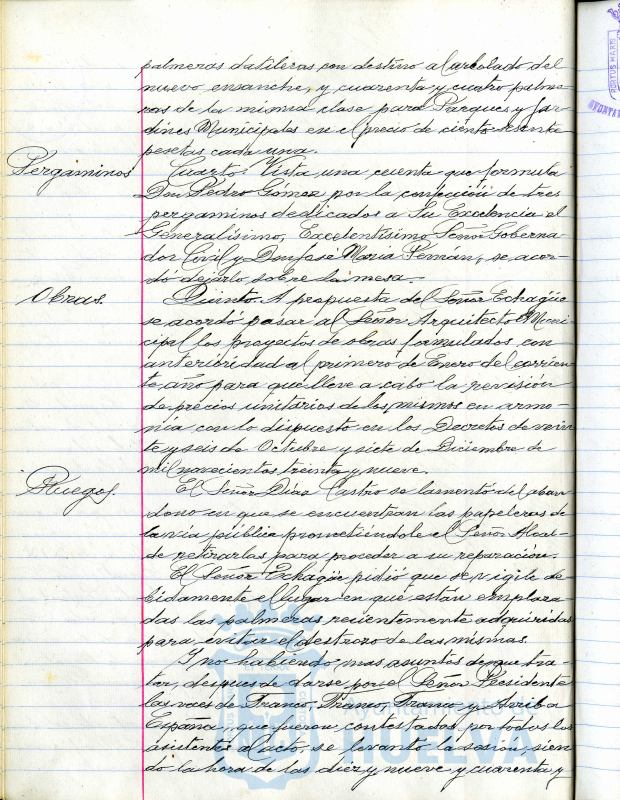 palmeras datileras con destino al arbolado del
nuevo ensanche, y cuarenta y cuatro palme-
ras de la misma clase para Parques y Jar-
dines Municipales en el precio de ciento sesenta
pesetas cada una.
Pergaminos
Cuarto. Vista una cuenta que formula
Don Pedro Gómez por la confección de tres
pergaminos dedicados a Su Excelencia el
Generalísimo, Excelentísimo Señor Goberna-
dor Civil y Don José María Pemán, se acor-
dó dejarlo sobre la mesa.
Obras.
Quinto. A propuesta del Señor Echagüe
se acordó pasar al Señor Arquitecto Muni-
cipal los proyectos de obras formulados con
anterioridad al primero de Enero del corrien-
te año para que lleve a cabo la revisión
de precios unitarios de los mismos en armo-
nía con lo dispuesto en los Decretos de vein-
te y seis de Octubre y siete de Diciembre de
mil novecientos treinta y nueve.
Ruegos.
El Señor Díaz Castro se lamentó del aban-
dono en que se encuentran las papeleras de
la vía pública prometiéndole el Señor Alcal-
de retirarlas para proceder a su reparación.
El Señor Echagüe pidió que se vigile de-
bidamente el lugar en que están emplaza-
das las palmeras recientemente adquiridas
para evitar el destrozo de las mismas.
Y no habiendo mas asuntos de que tra-
tar, despues de darse por el Señor Presidente
las voces de Franco, Franco, Franco y Arriba
España, que fueron contestados por todos los
asistentes al acto, se levantó la sesión, sien-
do la hora de las diez y nueve y cuarenta y
Ayuntamiento de
HUELVA
PORTUS MARIS